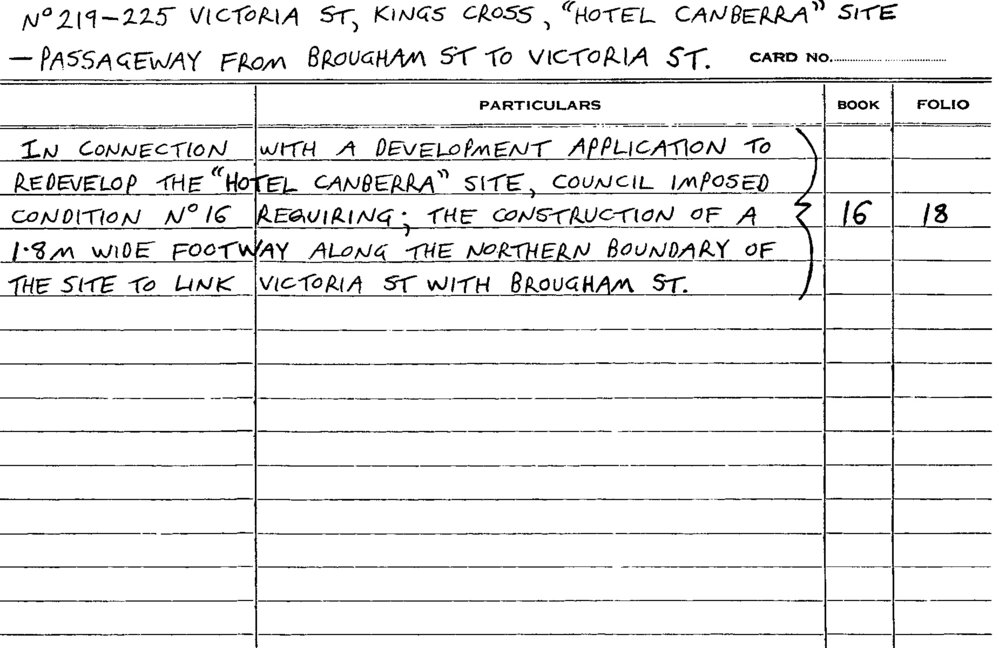 Nº 219-225 VICTORIA ST, KINGS CROSS, "HOTEL CANBERRA" SITE
— PASSAGEWAY FROM BROUGHAM ST TO VICTORIA ST. CARD NO.
PARTICULARS BOOK FOLIO
IN CONNECTION WITH A DEVELOPMENT APPLICATION TO
REDEVELOP THE "HOTEL CANBERRA" SITE, COUNCIL IMPOSED
CONDITION Nº 16 REQUIRING; THE CONSTRUCTION OF A 16 18
1·8M WIDE FOOTWAY ALONG THE NORTHERN BOUNDARY OF
THE SITE TO LINK VICTORIA ST WITH BROUGHAM ST.